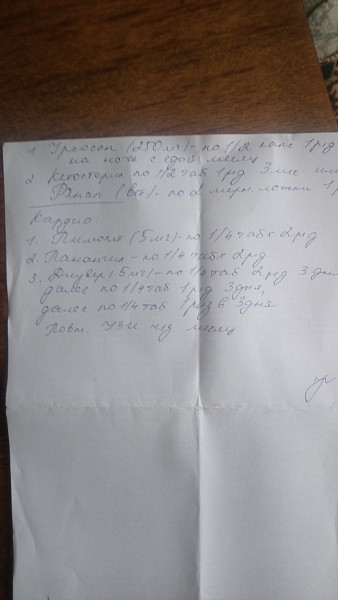 1. Урсосан (250мг) - по 1/2 капс 1рд
на ночь с едой месяц
2. по 1/2 таб 1рд 3мес
(вет) - по 2 мерн. ложки 1
Кардио:
1. (5мг) - по 1/4 таб х 2рд
2. Панангин - по 1/4 таб х 2рд
3. Диувер (5мг) - по 1/4 таб 2рд 3 дня
далее по 1/4 таб 1рд 3дня,
далее по 1/4 таб 1 раз в 3дня
Повт. УЗИ чрз месяц